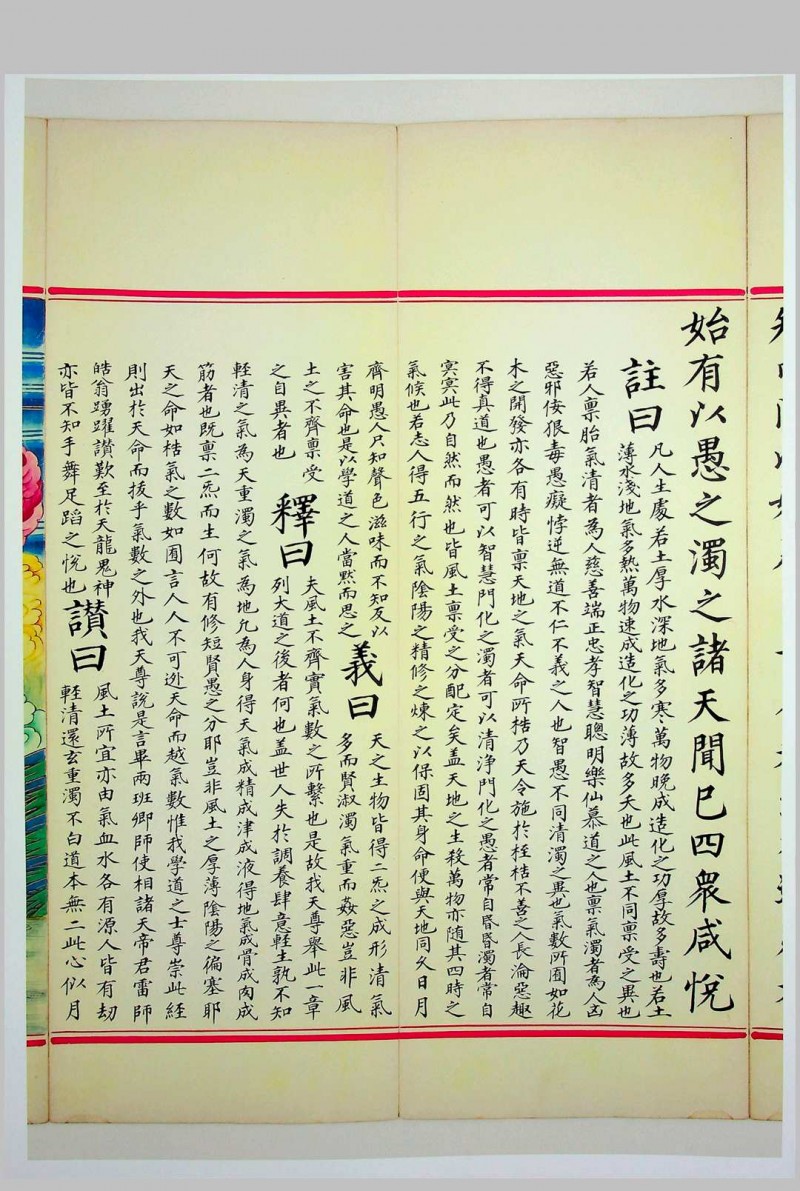 始有以愚之濁之諸天聞巳四衆咸悅
註曰
凡人生處若土厚水深地氣多寒萬物晚成造化之功厚故多壽也若土
薄水淺地氣多熱萬物速成造化之功薄故多夭也此風土不同禀受之異也
若人禀胎氣清者為人慈善端正忠孝智慧聰明樂仙慕道之人也禀氣濁者為人凶
惡邪佞狠毒愚癡悖逆無道不仁不義之人也智愚不同清濁之異也氣數所囿如花
木之開發亦各有時皆禀天地之氣天命所梏乃天令施於桎梏不善之人長淪惡趣
不得真道也愚者可以智慧門化之濁者可以清淨門化之愚者常自昏昏濁者常自
冥冥此乃自然而然也皆風土禀受之分配定矣盖天地之生殺萬物亦隨其四時之
氣候也若志人得五行之氣陰陽之精修之煉之以保固其身命便與天地同久日月
齊明愚人只知聲色滋味而不知反以
害其命也是以學道之人當黙而思之
義曰
天之生物皆得二炁之成形清氣
多而賢淑濁氣重而姦惡豈非風
土之不齊禀受
之自異者也
釋曰
夫風土不齊實氣數之所繫也是故我天尊舉此一章
列大道之後者何也盖世人失於調養肆意輕生孰不知
輕清之氣為天重濁之氣為地允為人身得天氣成精成津成液得地氣成骨成肉成
筋者也既禀二炁而生何故有修短賢愚之分耶豈非風土之厚薄陰陽之徧塞耶
天之命如梏氣之數如囿言人人不可逃天命而越氣數惟我學道之士尊崇此經
則出於天命而拔乎氣數之外也我天尊說是言畢兩班卿師使相諸天帝君雷師
皓翁踴躍讚歎至於天龍鬼神
亦皆不知手舞足蹈之悅也
讚曰
風土所宜亦由氣血水各有源人皆有劫
輕清還玄重濁不白道本無二此心似月